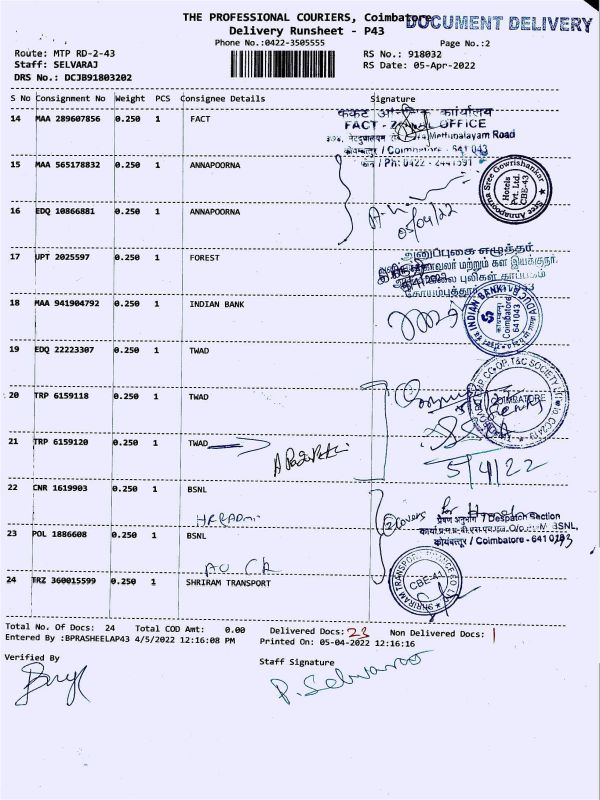 THE PROFESSIONAL COURIERS, Coimbatore
DOCUMENT DELIVERY
Delivery Runsheet - P43
Phone No.:0422-3505555
Page No.:2
Route: MTP RD-2-43
RS No.: 918032
Staff: SELVARAJ
RS Date: 05-Apr-2022
DRS No.: DCJB91803202
S No Consignment No Weight PCS Consignee Details Signature
14 MAA 289607856 0.250 1 FACT
फैक्ट कार्यालय
FACT - OFFICE
Mettupalayam Road
कोयम्बत्तूर / Coimbatore - 641 043
फोन / Ph: 0422 - 2441591
15 MAA 565178832 0.250 1 ANNAPOORNA
Sree Annapoorna Sree Gowrishankar
Hotels
Pvt. Ltd.
CBE-43
16 EDQ 10866881 0.250 1 ANNAPOORNA
05/04/22
17 UPT 2025597 0.250 1 FOREST
அனுப்புகை எழுத்தர்
மற்றும் கள இயக்குநர்
புலிகள் காப்பகம்
18 MAA 941904792 0.250 1 INDIAN BANK
INDIAN BANK
Coimbatore
641043
19 EDQ 22223307 0.250 1 TWAD
20 TRP 6159118 0.250 1 TWAD
CO.OP.T&C SOCIETY
COIMBATORE
21 TRP 6159120 0.250 1 TWAD
5/4/22
22 CNR 1619903 0.250 1 BSNL
2 Covers
for
प्रेषण अनुभाग / Despatch Section
BSNL,
कोयंबत्तूर / Coimbatore - 641 043
23 POL 1886608 0.250 1 BSNL
24 TRZ 360015599 0.250 1 SHRIRAM TRANSPORT
SHRIRAM TRANSPORT FINANCE CO LTD
CBE-41
Total No. Of Docs: 24 Total COD Amt: 0.00 Delivered Docs: 23 Non Delivered Docs: 1
Entered By :BPRASHEELAP43 4/5/2022 12:16:08 PM Printed On: 05-04-2022 12:16:16
Verified By
Staff Signature
P. Selvaraj